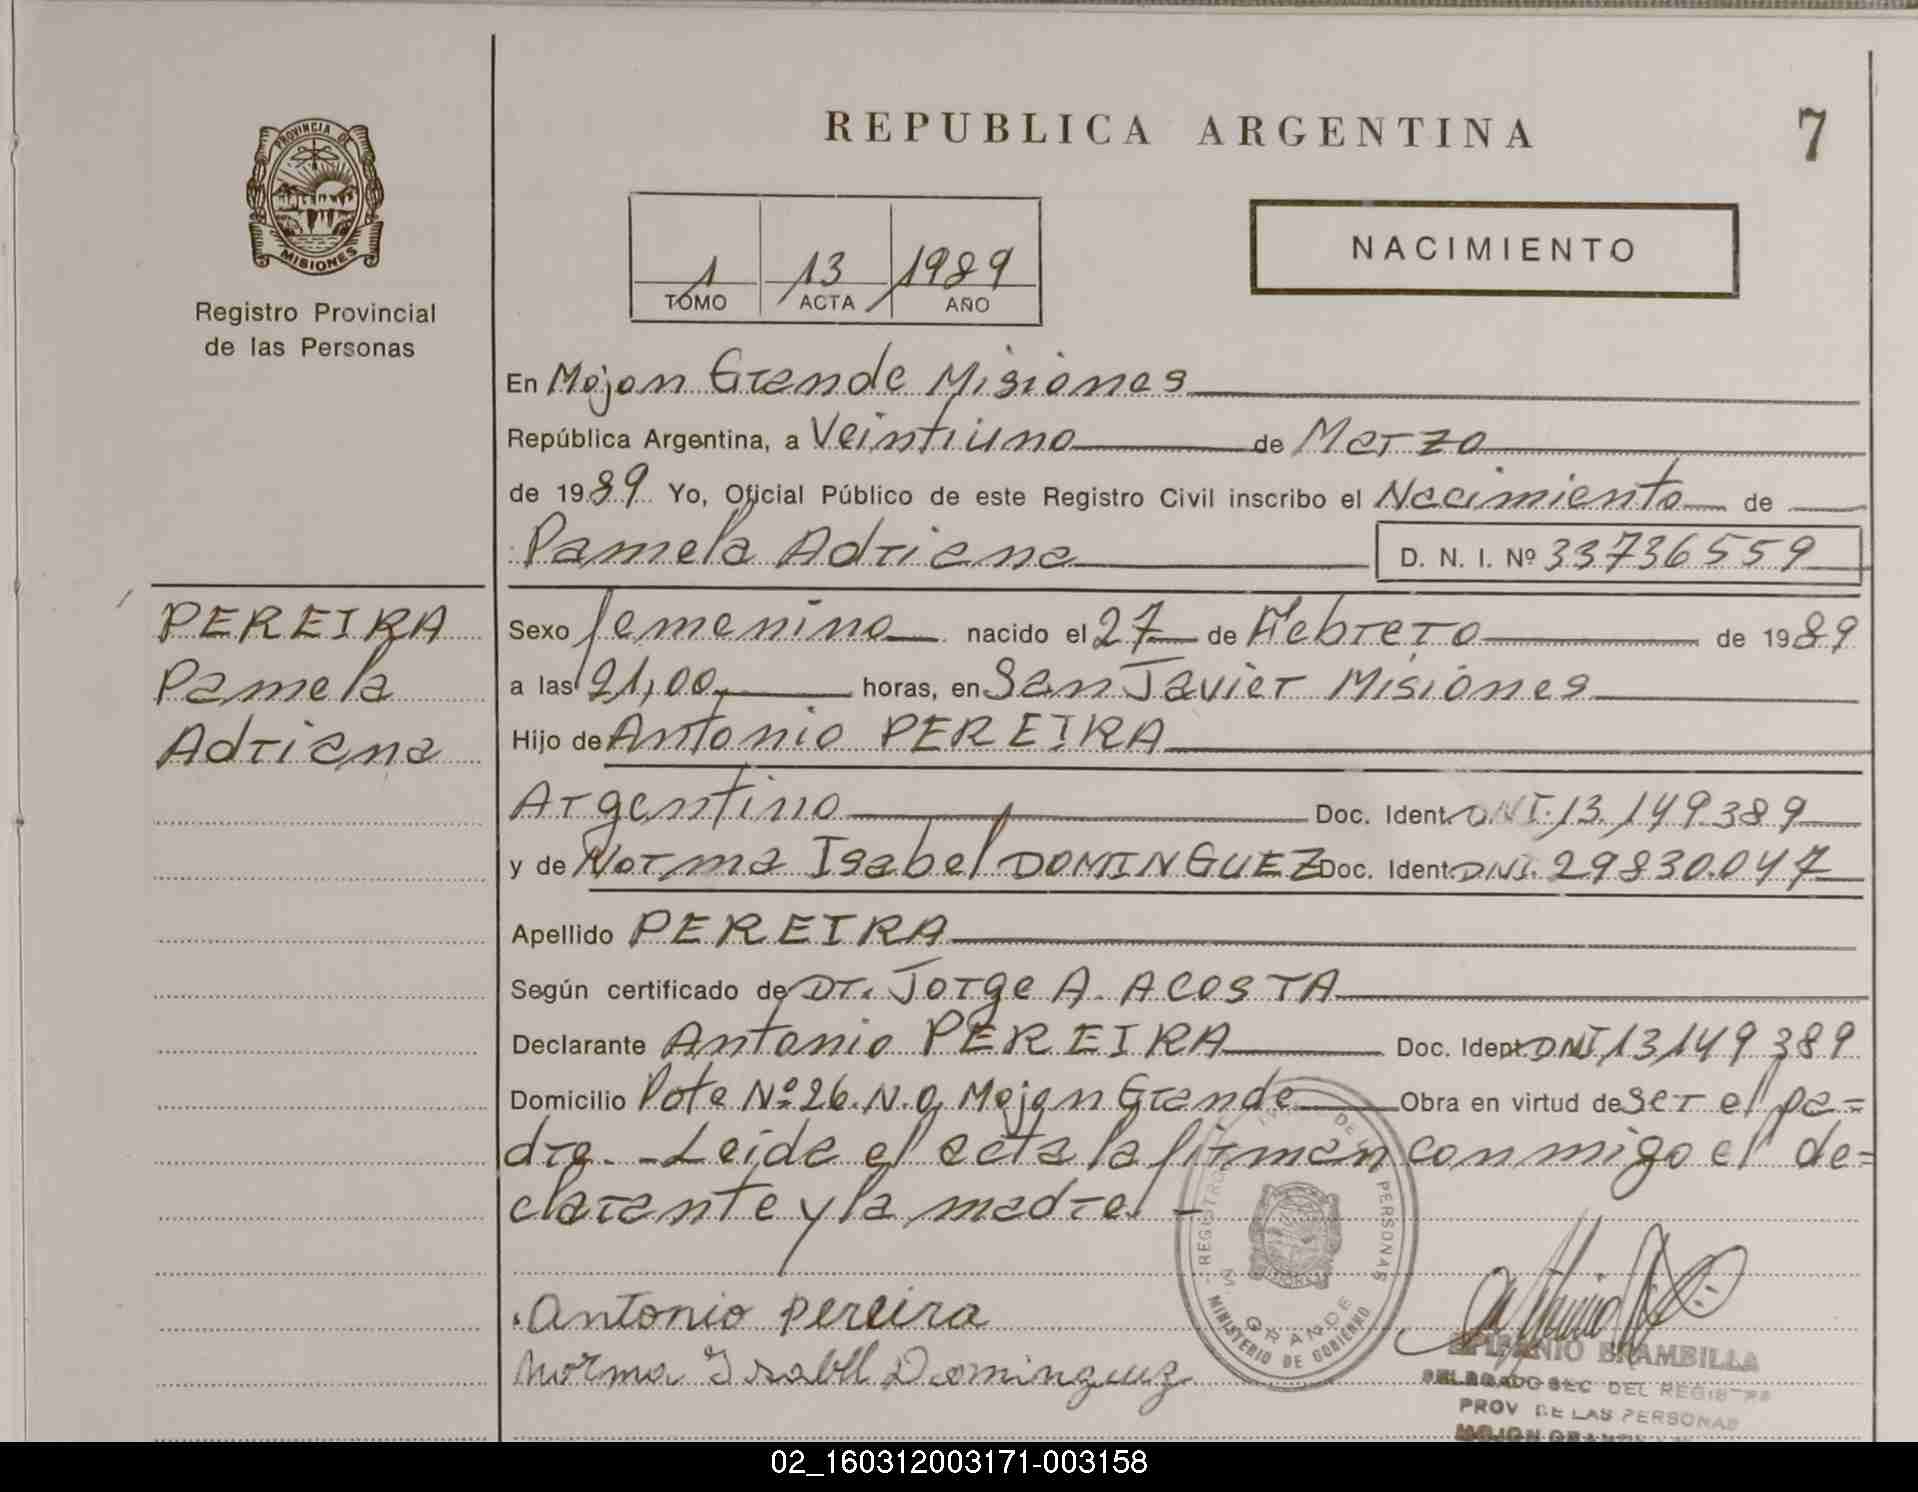 REPUBLICA ARGENTINA
7
PROVINCIA DE
MISIONES
Registro Provincial
de las Personas
1 13 1989
TOMO ACTA AÑO
NACIMIENTO
En Mojon Grande Misiones
República Argentina, a Veintiuno de Marzo
de 1989 Yo, Oficial Público de este Registro Civil inscribo el Nacimiento de
Pamela Adriana D. N. I. Nº 33736559
PEREIRA
Pamela
Adriana
Sexo femenino nacido el 27 de Febrero de 1989
a las 21,00 horas, en San Javier Misiones
Hijo de Antonio PEREIRA
Argentino Doc. Ident. DNI. 13.149.389
y de Norma Isabel DOMINGUEZ Doc. Ident. DNI. 29830.047
Apellido PEREIRA
Según certificado de Dr. Jorge A. ACOSTA
Declarante Antonio PEREIRA Doc. Ident. DNI 13149389
Domicilio Nº 26. Mojon Grande Obra en virtud de ser el pa=
dre. -Leida el acta la firman conmigo el de=
clarante y la madre. -
REGISTRO DE LAS PERSONAS
M. GRANDE
MINISTERIO DE GOBIERNO
Antonio pereira
Norma Isabel Dominguez
EPIFANIO BRAMBILLA
DELEGADO SEC DEL REGISTRO
PROV DE LAS PERSONAS
MOJON GRANDE
02_160312003171-003158